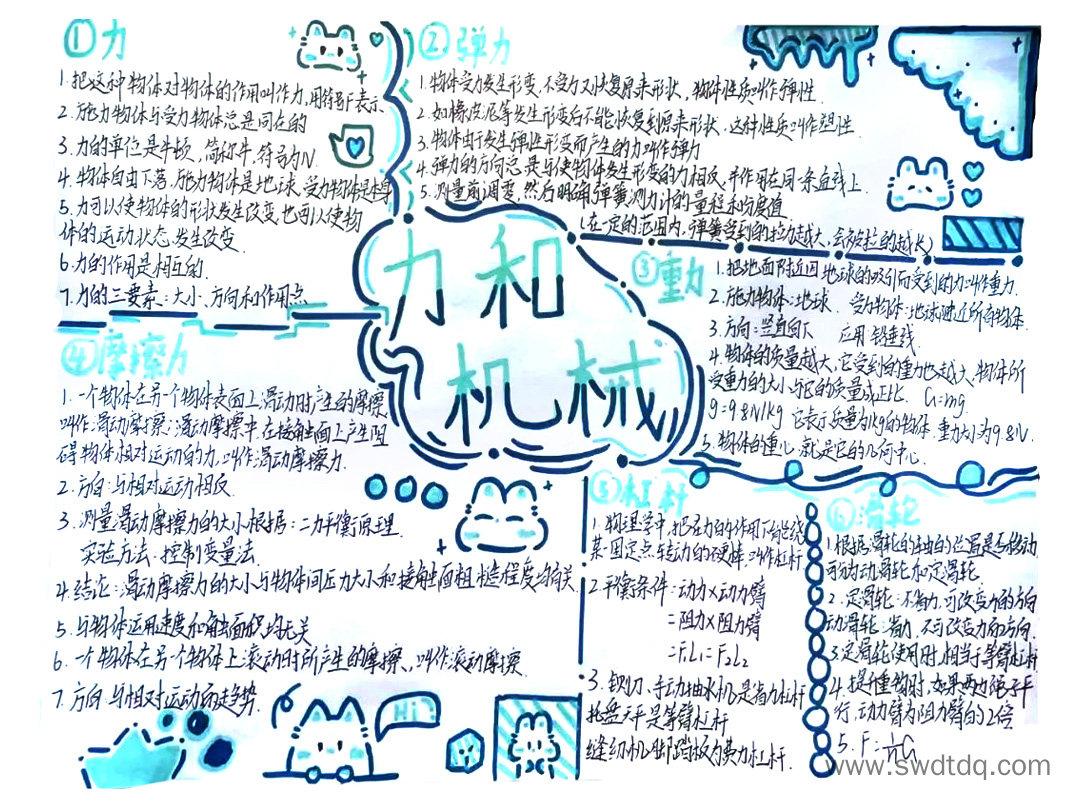 ①力
1.把这种物体对物体的作用叫作力,用符号F表示
2.施力物体与受力物体总是同在的
3.力的单位是牛顿,简称牛,符号为N.
4.物体自由下落,施力物体是地球,受力物体是本身
5.力可以使物体的形状发生改变,也可以使物
体的运动状态,发生改变.
6.力的作用是相互的.
7.力的三要素:大小、方向和作用点
②弹力
1.物体受力发生形变,不受力又恢复原来形状,物体性质叫作弹性.
2.如橡皮泥等发生形变后不能恢复到原来形状,这种性质叫作塑性.
3.物体由于发生弹性形变而产生的力叫作弹力
4.弹力的方向总是与使物体发生形变的力相反,并作用在同一条直线上.
5.测量前调零,然后明确弹簧测力计的量程和分度值.
(在一定的范围内,弹簧受到的拉力越大,会被拉的越长)
力和
机械
③重力
1.把地面附近因地球的吸引而受到的力叫作重力.
2.施力物体:地球. 受力物体:地球附近所有物体.
3.方向:竖直向下 应用:铅垂线
4.物体的质量越大,它受到的重力也越大,物体所
受重力的大小与它的质量成正比. G=mg.
g=9.8N/kg 它表示质量为1kg的物体,重力大小为9.8N.
5.物体的重心,就是它的几何中心.
④摩擦力
1.一个物体在另一个物体表面上滑动时产生的摩擦,
叫作滑动摩擦;滑动摩擦中,在接触面上产生阻
碍物体相对运动的力,叫作滑动摩擦力.
2.方向:与相对运动相反.
3.测量滑动摩擦力的大小根据:二力平衡原理.
实验方法:控制变量法.
4.结论:滑动摩擦力的大小与物体间压力大小和接触面粗糙程度均有关
5.与物体运用速度和触面积均无关
6.一个物体在另一个物体上滚动时所产生的摩擦,叫作滚动摩擦.
7.方向:与相对运动而趋势.
Hi
⑤杠杆
1.物理学中,把在力的作用下能绕
某一固定点转动的硬棒叫作杠杆
2.平衡条件:动力×动力臂
=阻力×阻力臂
=F₁L₁=F₂L₂
3.铡刀、手动抽水机是省力杠杆
托盘天平是等臂杠杆
缝纫机脚踏板为费力杠杆.
⑥滑轮
1.根据滑轮的轴的位置是否移动,
可分为动滑轮和定滑轮.
2.定滑轮:不省力,可改变力的方向
动滑轮:省力,不可改变力的方向.
3.定滑轮使用时,相当于等臂杠杆
4.提升重物时,如果两边绳子平
行,动力臂为阻力臂的2倍
5.F=1/nG
www.swdtdq.com